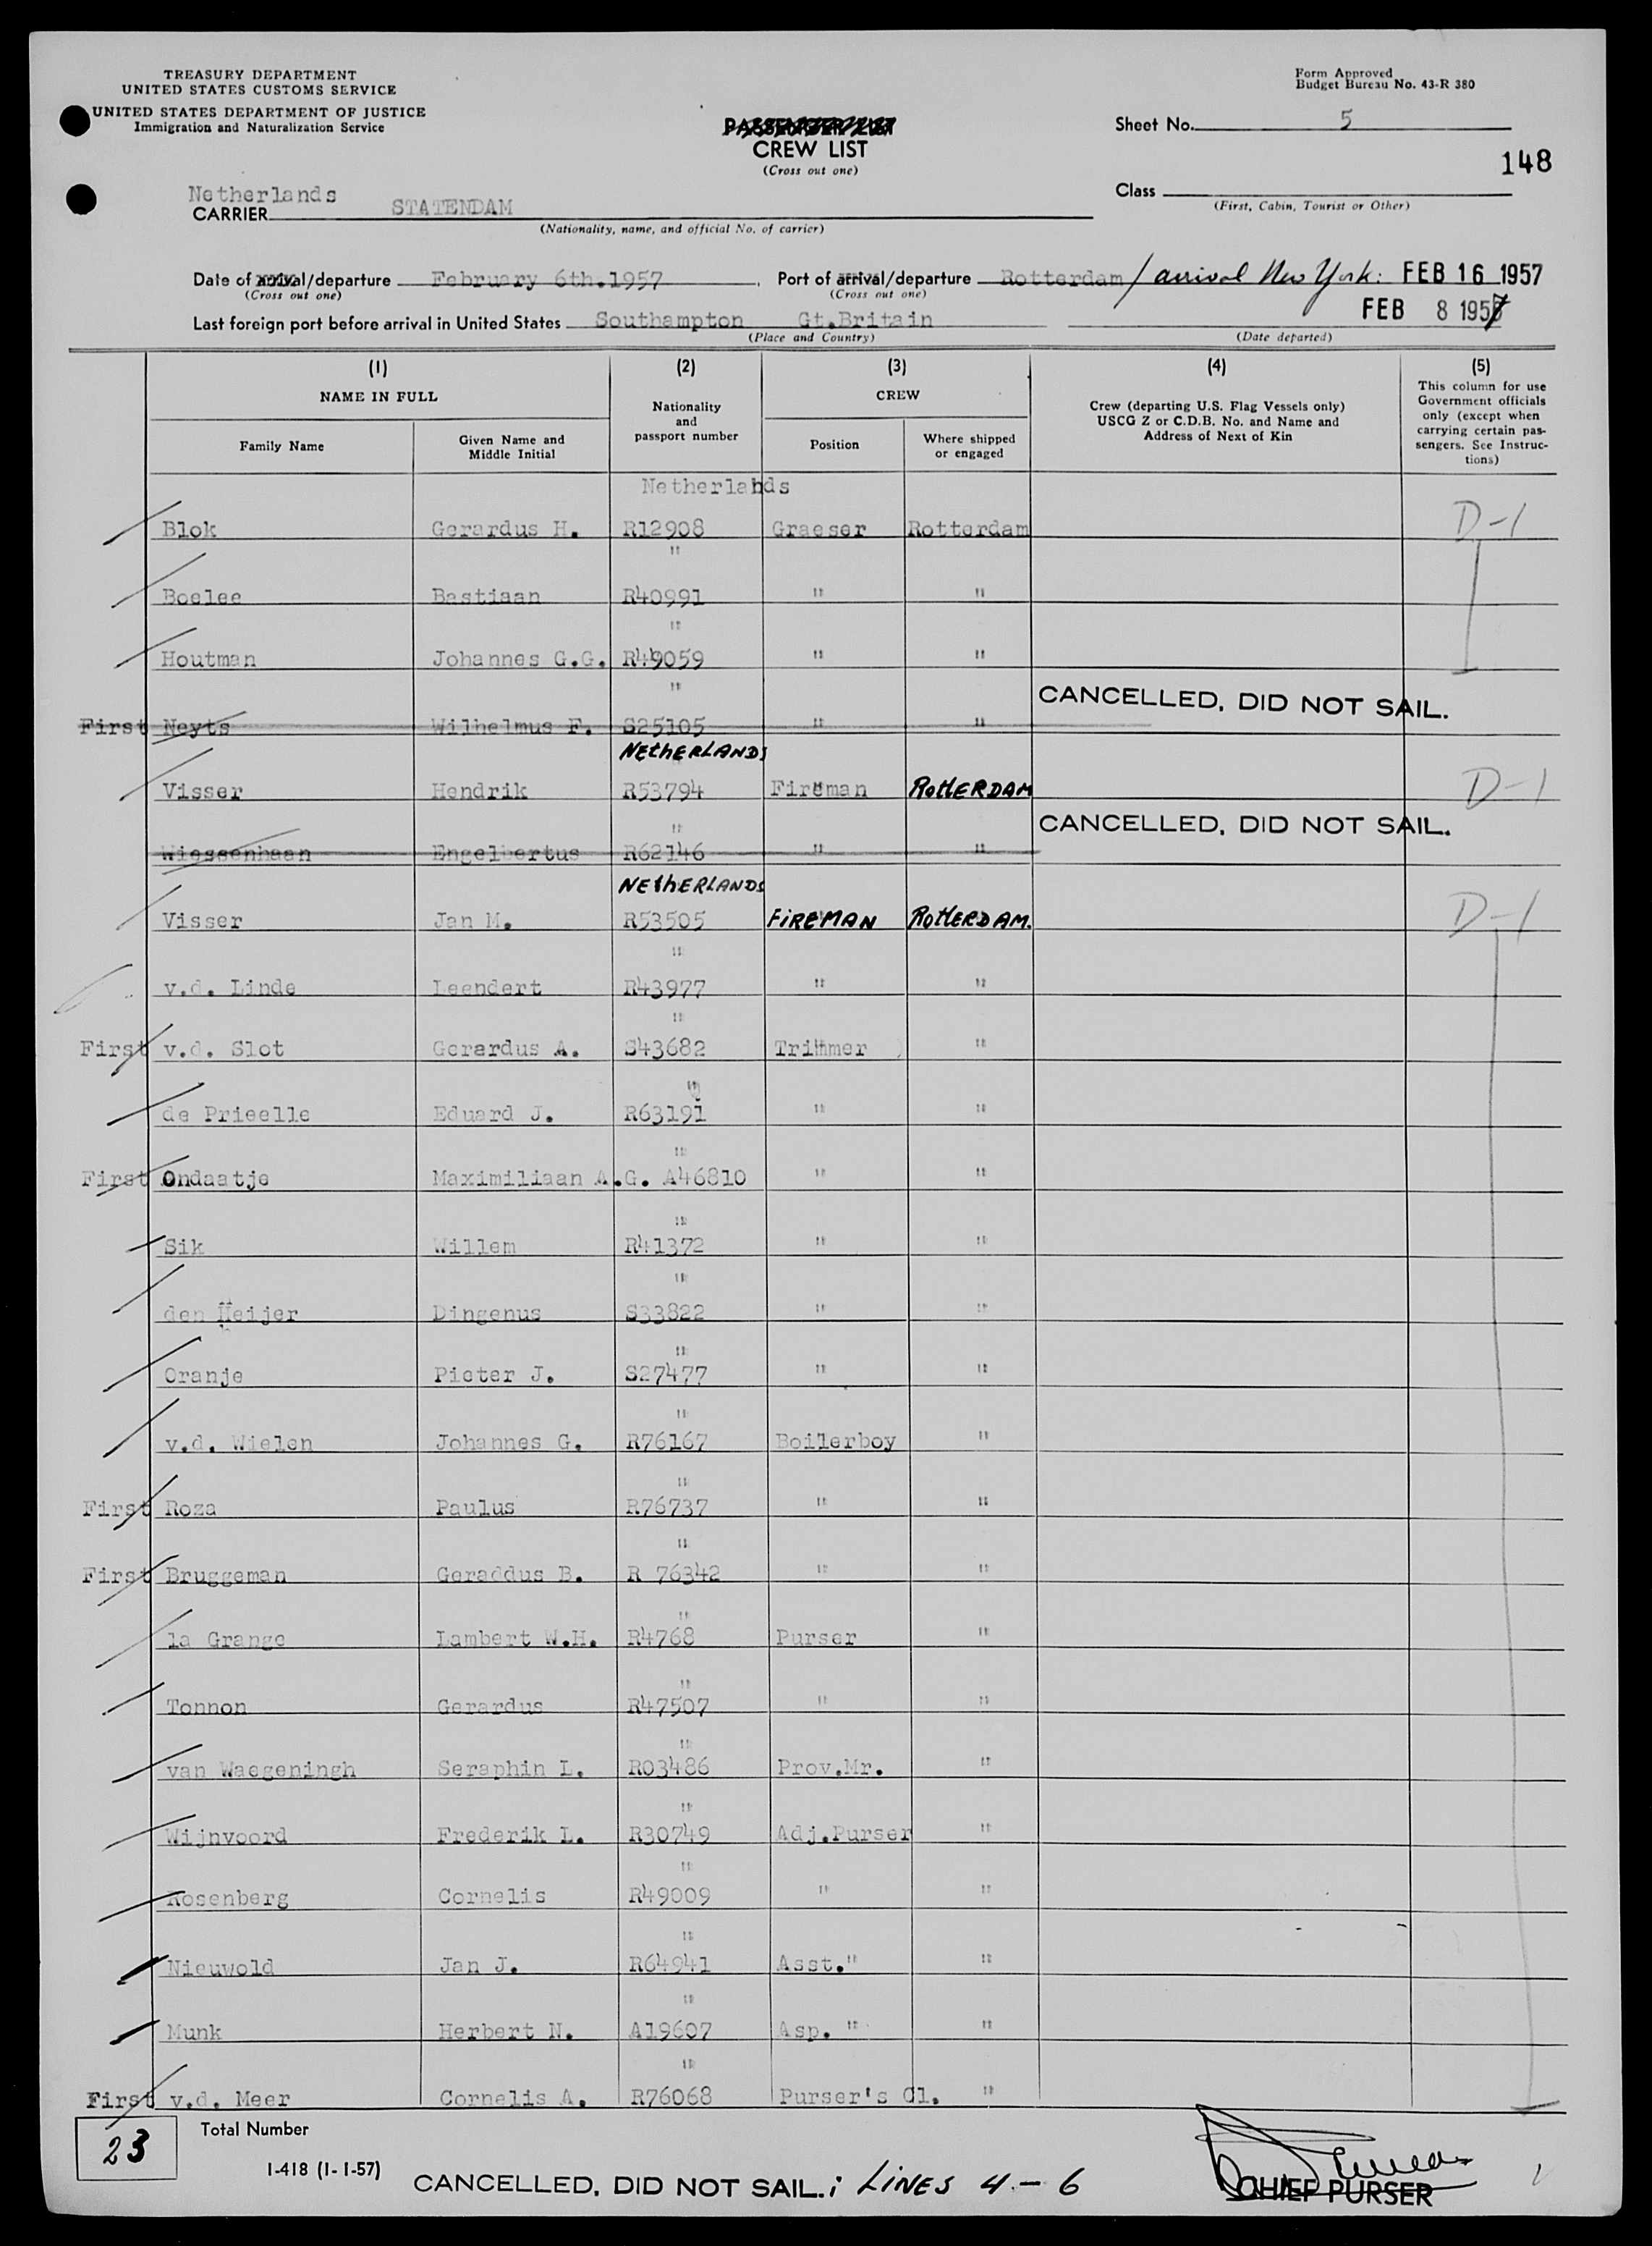 TREASURY DEPARTMENT
UNITED STATES CUSTOMS SERVICE
UNITED STATES DEPARTMENT OF JUSTICE
Immigration and Naturalization Service
Form Approved
Budget Bureau No. 43-R 380
PASSENGER LIST
CREW LIST
(Cross out one)
Sheet No. 5
148
Class
(First, Cabin, Tourist or Other)
Netherlands
CARRIER STATENDAM
(Nationality, name, and official No. of carrier)
Date of arrival/departure February 6th.1957. Port of arrival/departure Rotterdam / arrival New York: FEB 16 1957
(Cross out one) (Cross out one)
FEB 8 1957
Last foreign port before arrival in United States Southampton Gt.Britain
(Place and Country) (Date departed)
(1) (2) (3) (4) (5)
NAME IN FULL
Family Name
Given Name and Middle Initial
Nationality and passport number
CREW
Position
Where shipped or engaged
Crew (departing U.S. Flag Vessels only)
USCG Z or C.D.B. No. and Name and
Address of Next of Kin
This column for use
Government officials
only (except when
carrying certain pas-
sengers. See Instruc-
tions)
Netherlands
Blok Gerardus H. R12908 Greaser Rotterdam D-1
"
Boelee Bastiaan R40991 " "
"
Houtman Johannes G.G. R49059 " "
"
CANCELLED, DID NOT SAIL.
First Neyts Wilhelmus F. S25105 " "
NETHERLANDS
Visser Hendrik R53794 Fireman ROTTERDAM D-1
"
CANCELLED, DID NOT SAIL.
Wiessenhaan Engelbertus R62146 " "
NETHERLANDS
Visser Jan M. R53505 FIREMAN ROTTERDAM. D-1
"
v.d. Linde Leendert R43977 " "
"
First v.d. Slot Gerardus A. S43682 Trimmer "
"
de Prieelle Eduard J. R63191 " "
"
First Ondaatje Maximiliaan A.G. A46810 " "
"
Sik Willem R41372 " "
"
den Heijer Dingenus S33822 " "
"
Oranje Pieter J. S27477 " "
"
v.d. Wielen Johannes G. R76167 Boilerboy "
"
First Roza Paulus R76737 " "
"
First Bruggeman Geraddus B. R 76342 " "
"
la Grange Lambert W.H. R4768 Purser "
"
Tonnon Gerardus R47507 " "
"
van Waegeningh Seraphin L. R03486 Prov.Mr. "
"
Wijnvoord Frederik L. R30749 Adj.Purser "
"
Rosenberg Cornelis R49009 " "
"
Nieuwold Jan J. R64941 Asst." "
"
Munk Herbert N. A19607 Asp. " "
"
First v.d. Meer Cornelis A. R76068 Purser's Cl. "
23 Total Number
I-418 (1-1-57)
CANCELLED, DID NOT SAIL.: LINES 4 - 6
CHIEF PURSER